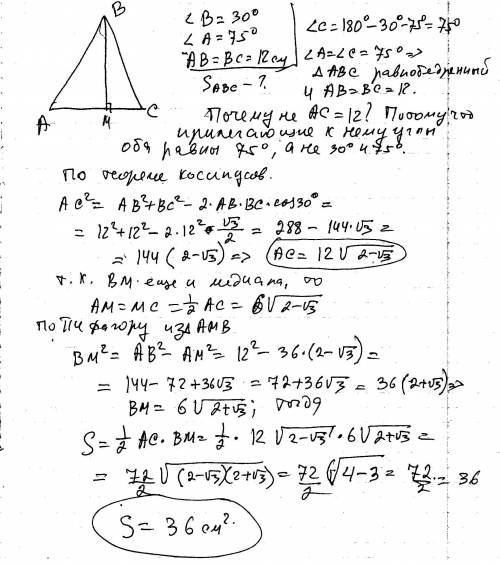 B
A
M
C
∠B = 30°
∠A = 75°
AB = BC = 12 см
S_ABC - ?
∠C = 180° - 30° - 75° = 75°
∠A = ∠C = 75° =>
△ABC равнобедренный
и AB = BC = 12.
Почему не AC = 12? Потому что
прилегающие к нему углы
оба равны 75°, а не 30° и 75°.
По теореме косинусов.
AC² = AB² + BC² - 2·AB·BC·cos30° =
= 12² + 12² - 2·12²·√3/2 = 288 - 144·√3 =
= 144(2-√3) => AC = 12√(2-√3)
т.к. BM еще и медиана, то
AM = MC = 1/2 AC = 6√(2-√3)
по Пифагору из AMB
BM² = AB² - AM² = 12² - 36·(2-√3) =
= 144 - 72 + 36√3 = 72 + 36√3 = 36(2+√3) =>
BM = 6√(2+√3); тогда
S = 1/2 AC·BM = 1/2 · 12√(2-√3) · 6√(2+√3) =
= 72/2 √((2-√3)(2+√3)) = 72/2 √(4-3) = 72/2 = 36
S = 36 см².